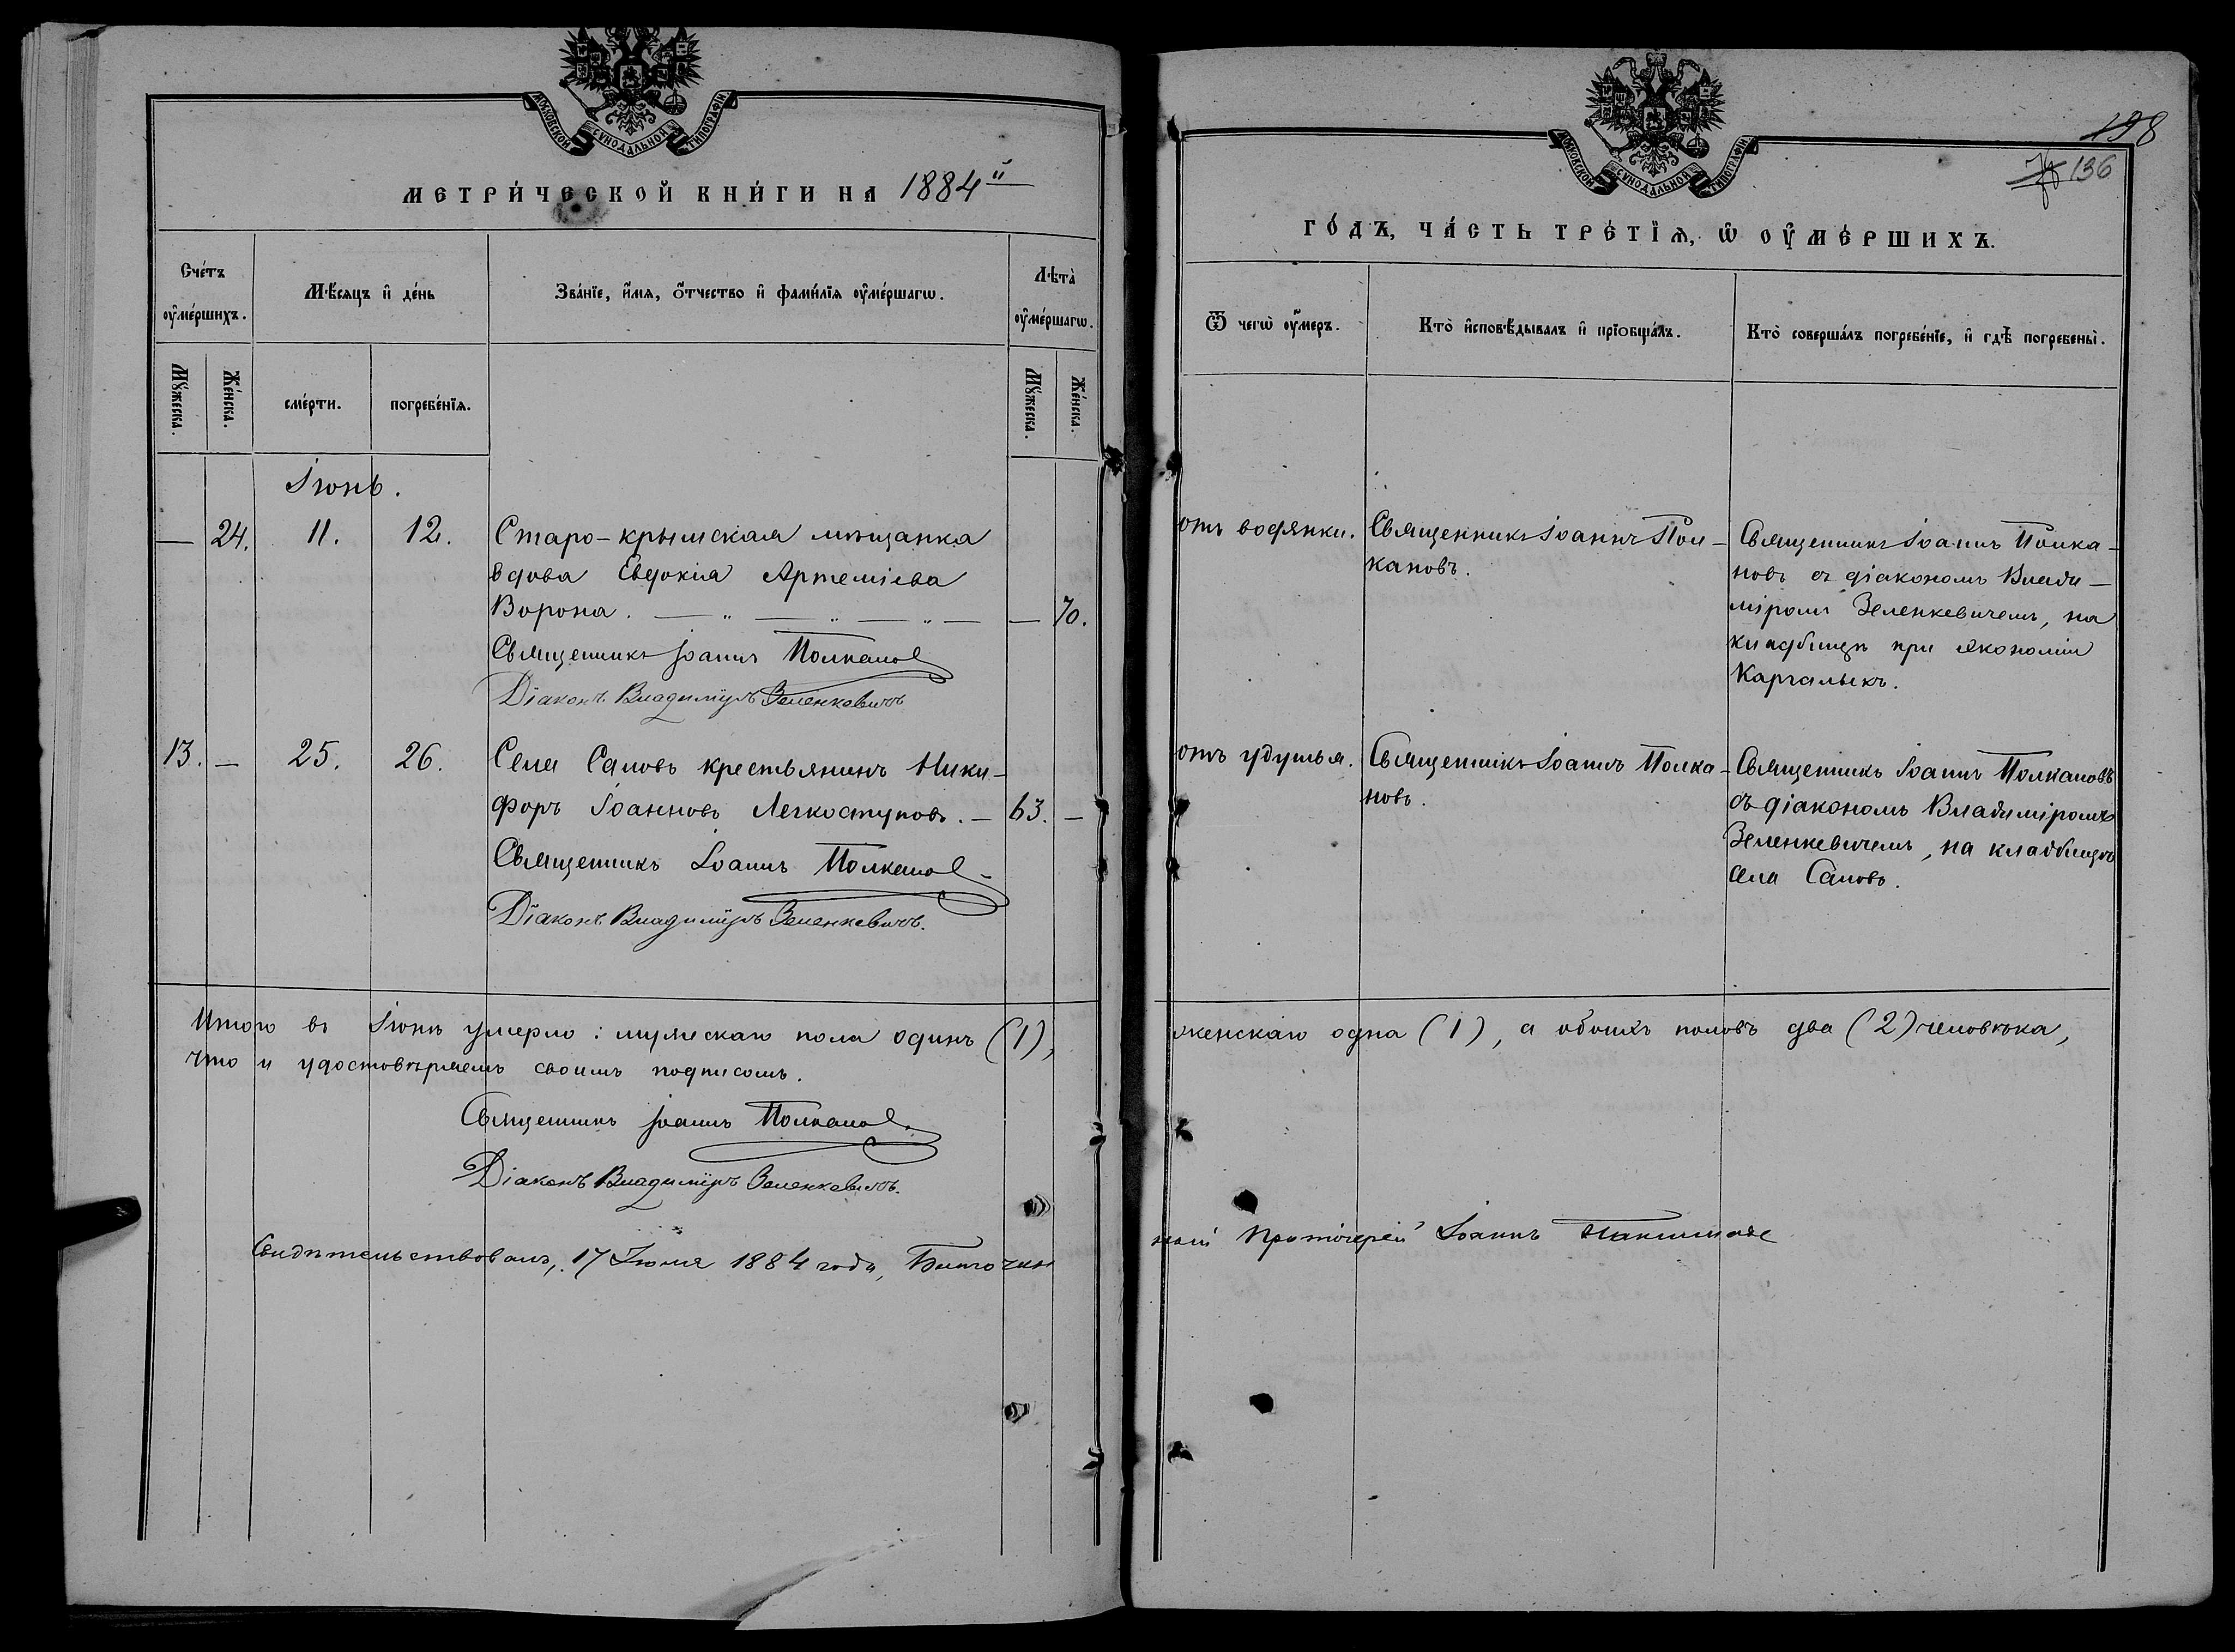 МОСКОВСКОЙ СѴНОДАЛЬНОЙ ТИПОГРАФІИ
МЕТРИ́ЧЕСКОЙ КНИ́ГИ НА 1884й
Сче́тъ ᲂу҆ме́ршихъ.
Мѣ́сяцъ и҆ де́нь
Зва́нїе, и҆́мя, ѻ҆́тчество и҆ фами́лїя ᲂу҆ме́ршагѡ.
Лѣ́та ᲂу҆ме́ршагѡ.
Мꙋ́жеска.
Же́нска.
сме́рти.
погребе́нїѧ.
Мꙋ́жеска.
Же́нска.
Іюнь.
— 24. 11. 12. Старо-крымская мѣщанка
вдова Евдокія Артеміева
Ворона. — „ — „ — „ — — 70.
Священникъ Іоаннъ Полканов
Діаконъ Владиміръ Зеленкевичъ
13. — 25. 26. Села Саловъ крестьянинъ Ники-
форъ Іоанновъ Легкоступовъ. — 63. —
Священникъ Іоаннъ Полканов
Діаконъ Владиміръ Зеленкевичъ.
Итого въ Іюнѣ умерло: мужескаго пола одинъ (1),
что и удостовѣряемъ своимъ подписомъ.
Священникъ Іоаннъ Полканов
Діаконъ Владиміръ Зеленкевичъ.
Свидѣтельствовалъ, 17 Іюля 1884 года, Благочин
МОСКОВСКОЙ СѴНОДАЛЬНОЙ ТИПОГРАФІИ
198
136
ГО́ДЪ, ЧА́СТЬ ТРЕ́ТЇѦ, Ѡ҆ ᲂУ҆МЕ́РШИХЪ.
Ѿ чегѡ̀ ᲂу҆́меръ.
Кто̀ и҆сповѣ́дывалъ и҆ прїобща́лъ.
Кто̀ соверша́лъ погребе́нїе, и҆ гдѣ̀ погребены̀.
отъ водянки.
Священникъ Іоаннъ Пол-
кановъ.
Священникъ Іоаннъ Полка-
новъ съ діакономъ Влади-
міромъ Зеленкевичемъ, на
кладбищѣ при экономіи
Каргалыкъ.
отъ удушья.
Священникъ Іоаннъ Полка-
новъ.
Священникъ Іоаннъ Полкановъ
съ діакономъ Владиміромъ
Зеленкевичемъ, на кладбищѣ
села Саловъ.
женскаго одна (1), а обоихъ половъ два (2) человѣка,
ный Протоіерей Іоаннъ